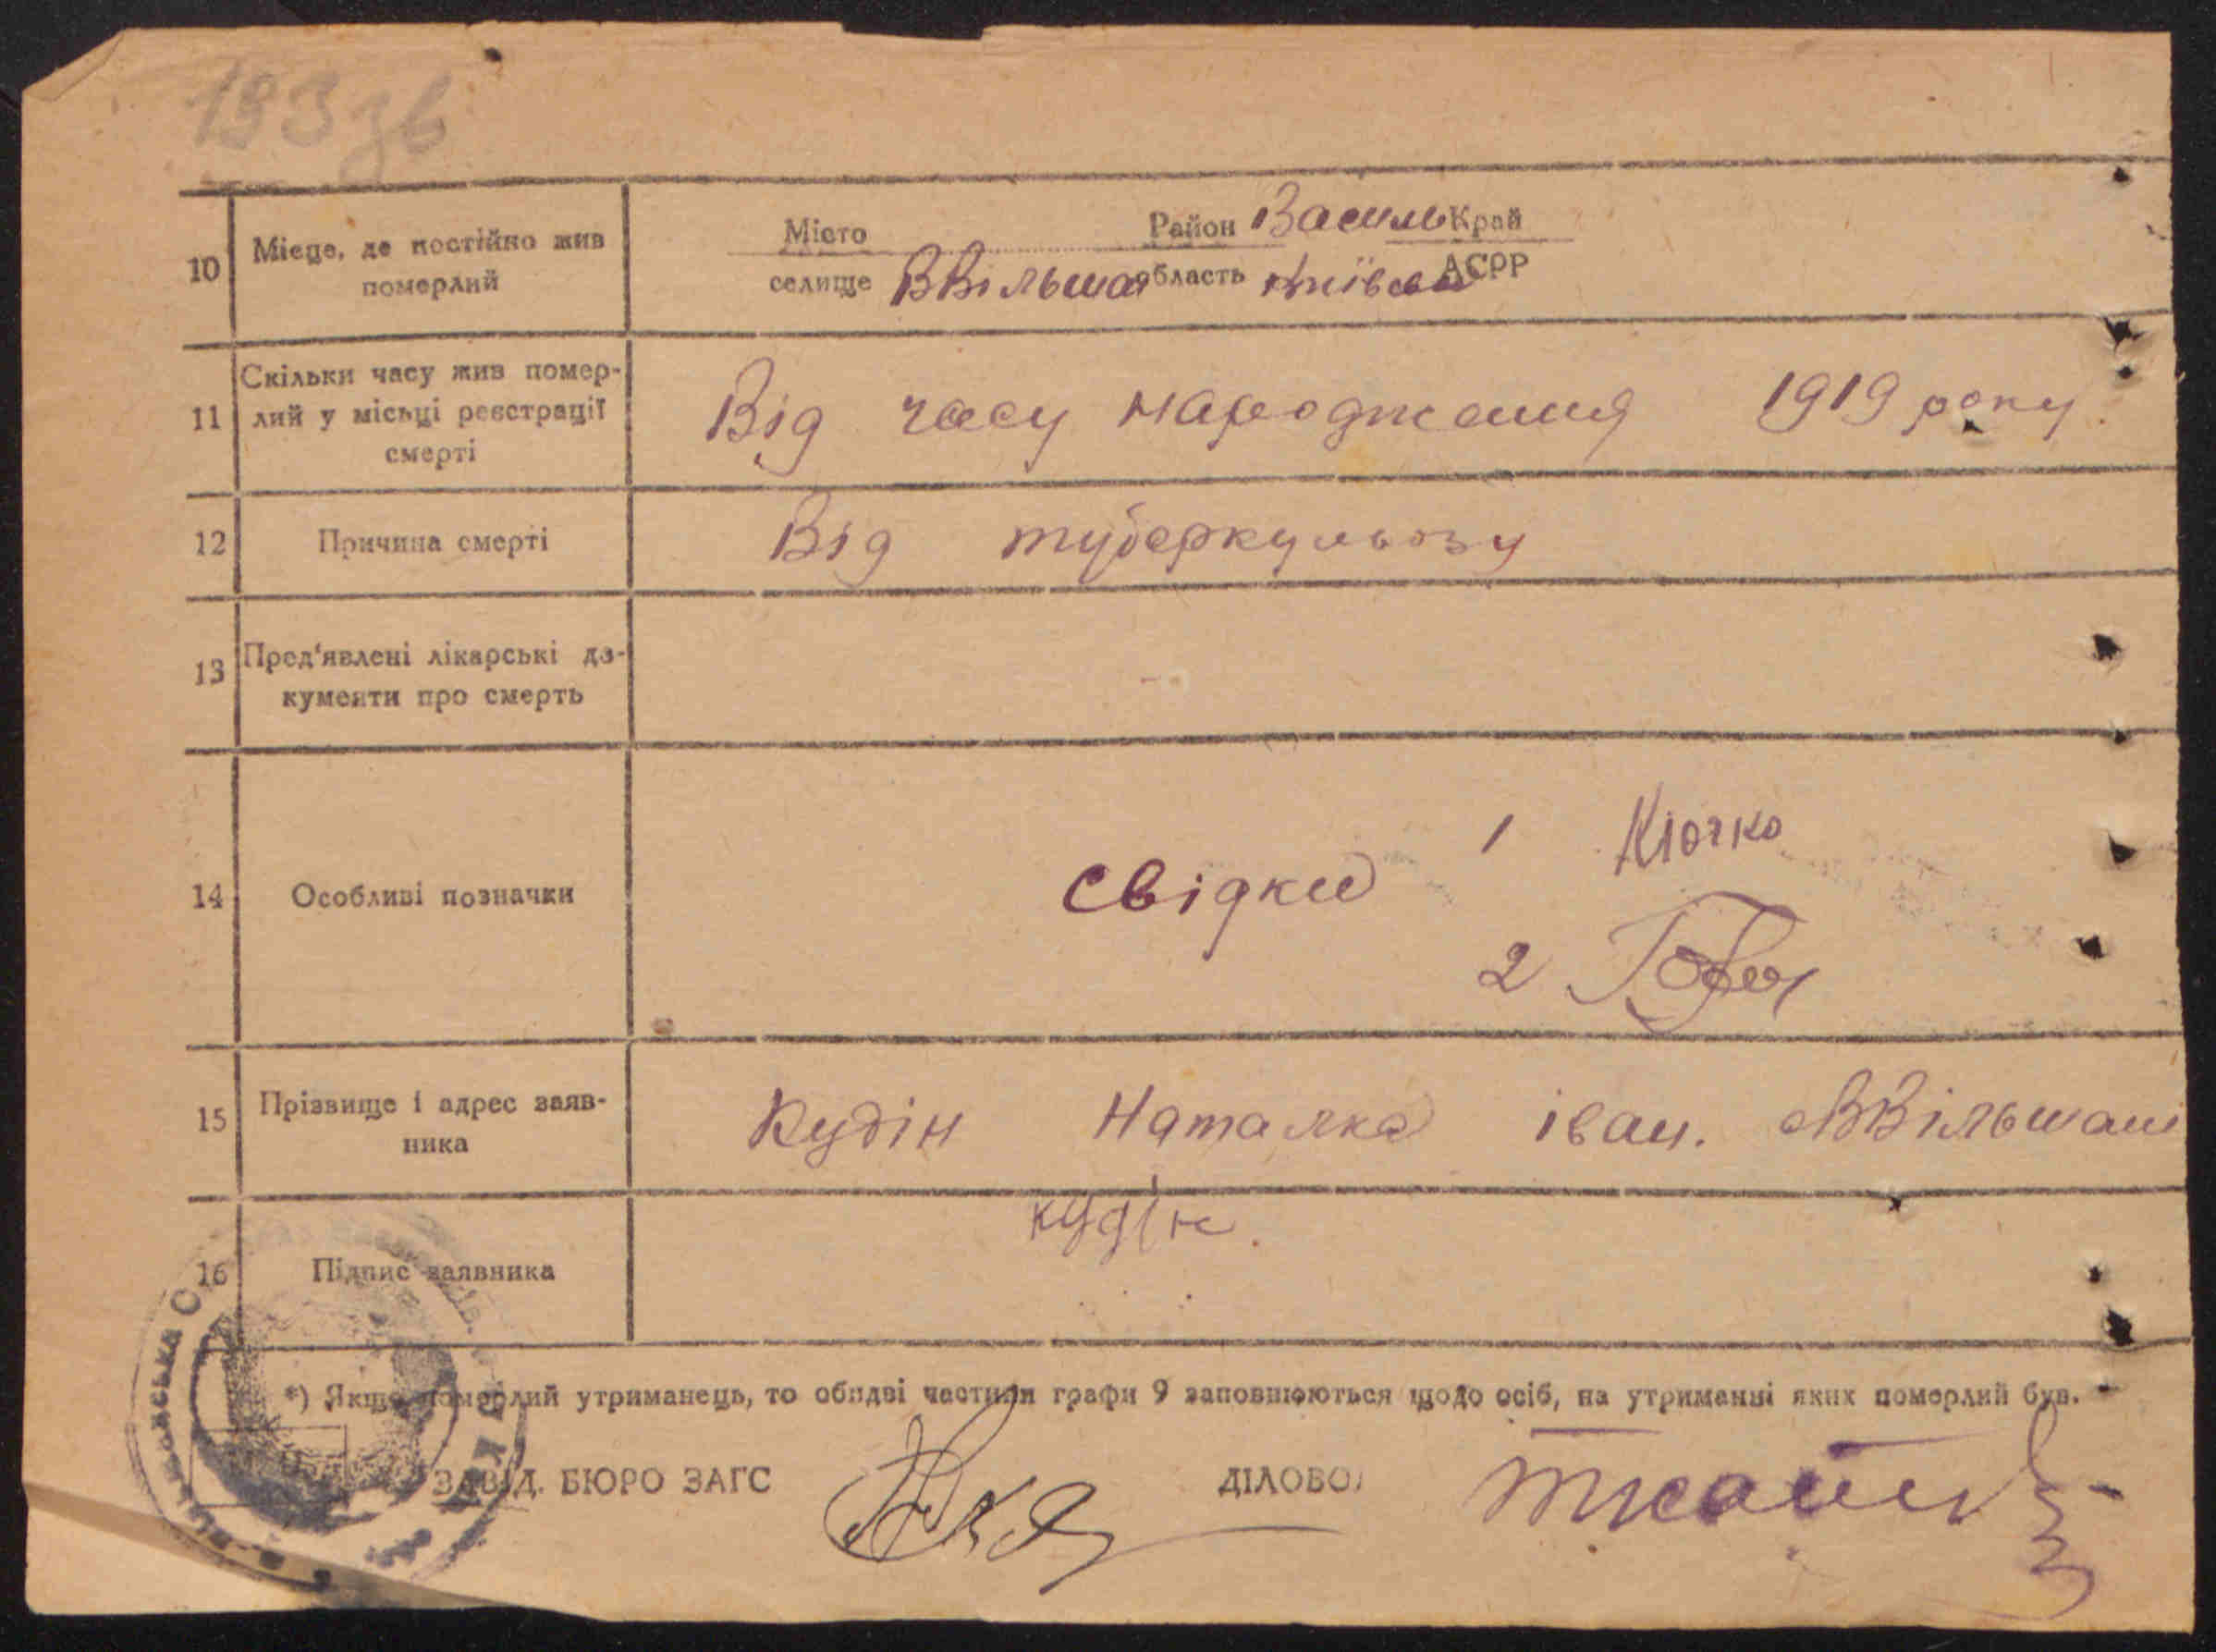 193 зв
10 Місце, де постійно жив померлий
Місто Район Василь Край
селище ВВільша область Київськ АСРР
11 Скільки часу жив помер-
лий у місьці реєстрації
смерті
Від часу народження 1919 року
12 Причина смерті Від туберкульозу
13 Пред'явлені лікарські до-
кументи про смерть
14 Особливі позначки свідки
1 Клочко
2
15 Прізвище і адрес заяв-
ника
Кудін Наталка іван. ВВільшан
16 Підпис заявника
кудін.
*) Якщо померлий утриманець, то обидві частини графи 9 заповнюються щодо осіб, на утриманні яких померлий був.
ЗАВІД. БЮРО ЗАГС ДІЛОВОД